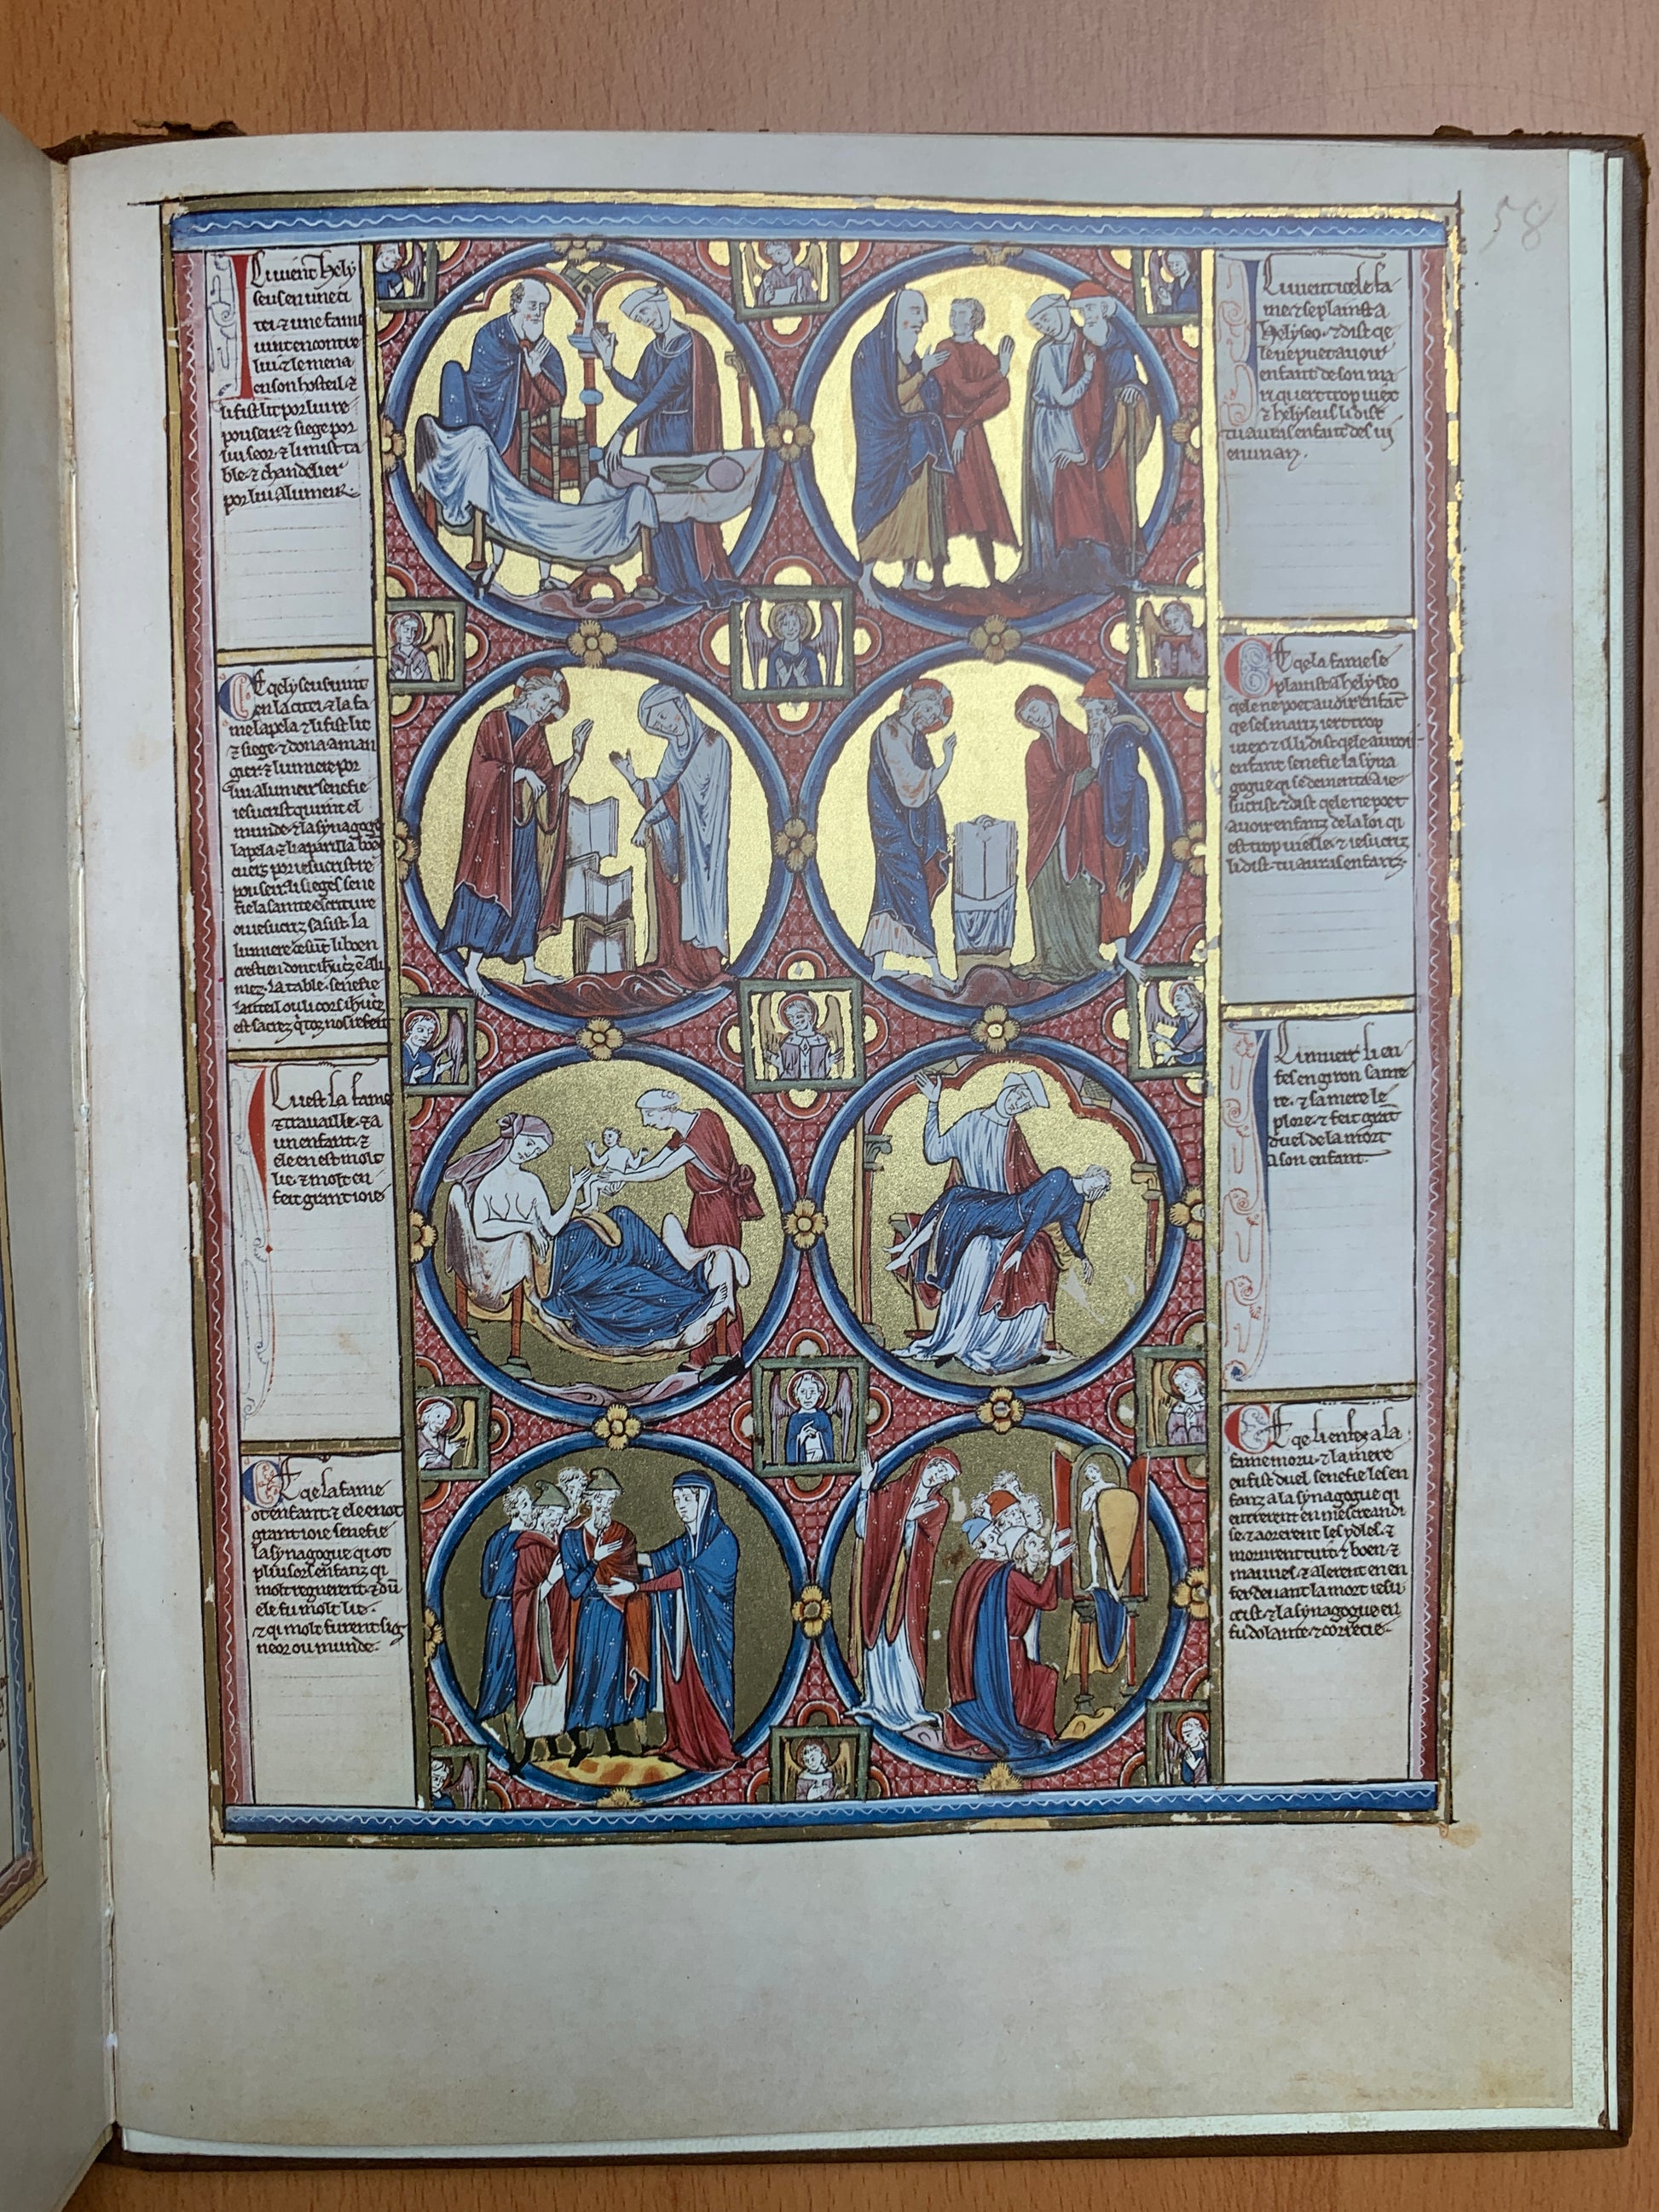 58
Ici vient hely
seus en une ci
tei · ⁊ une fame
vint encontre
lui · ⁊ le mena
en son hosteil · ⁊
li fist lit por lui re
poser · ⁊ siege por
lui seor · ⁊ li mist ta
ble · ⁊ chandelier
por lui alumeir ·
Ce qe helyseus vint
en la citei · ⁊ la fa
me lapela ⁊ li fist lit
⁊ siege · ⁊ dona a man
gier · ⁊ lumiere por
lui alumeir senefie
iesucrist qui vint el
munde · ⁊ la synagoge
lapela · ⁊ li aparilla boen
cuers por iesucrist re
poser · li sieges sene
fie la sainte escriture
ou iesucriz sasist · La
lumiere ce sunt li boen
crestien dont ih'ucriz e ali
mez · La table · senefie
lauteil ou li cors ihucriz
est sacrez q' toz nos refeit
Ici est la fame
⁊ travaille · ⁊ a
un enfant · ⁊
ele en est molt
lie · ⁊ molt en
feit grant ioie
Ce qe la fame
ot enfant ⁊ ele en ot
grant ioie senefie
la synagogue qi ot
plusors enfanz qi
molt regnerent · ⁊ dun
ele fu molt lie ·
⁊ qi molt furent sig
neor ou munde ·
Ici vient icele fa
me ⁊ se plaint a
helyseo · ⁊ dist qe
le ne puet avoir
enfant de son ma
ri quert trop viez
⁊ helyseus li dist
tu auras enfant des iij
en un an ·
Ce qe la fame se
plaint a helyseo
qele ne poet avoir enfant
qe ses mariz iert trop
viez · ⁊ il li dist qele auroit
enfant senefie la syna
gogue qi se dementa a ie
sucrist · ⁊ dist qele ne poet
avoir enfanz de la loi qi
est trop vielle · ⁊ iesucriz
li dist · tu auras enfanz ·
Ici muert li en
fes en giron sa me
re · ⁊ sa mere le
plore · ⁊ feit grant
duel de la mort
a son enfant ·
Ce qe li enfes a la
fame moru · ⁊ la mere
en fist duel senefie les en
fanz a la synagogue qi
entrerent en mescreandi
se · ⁊ aorerent les ydles · ⁊
morurent tuit · ⁊ boen · ⁊
mauves · ⁊ alerent en en
fer devant la mort iesu
crist · ⁊ la synagogue en
fu dolante · ⁊ correcie ·